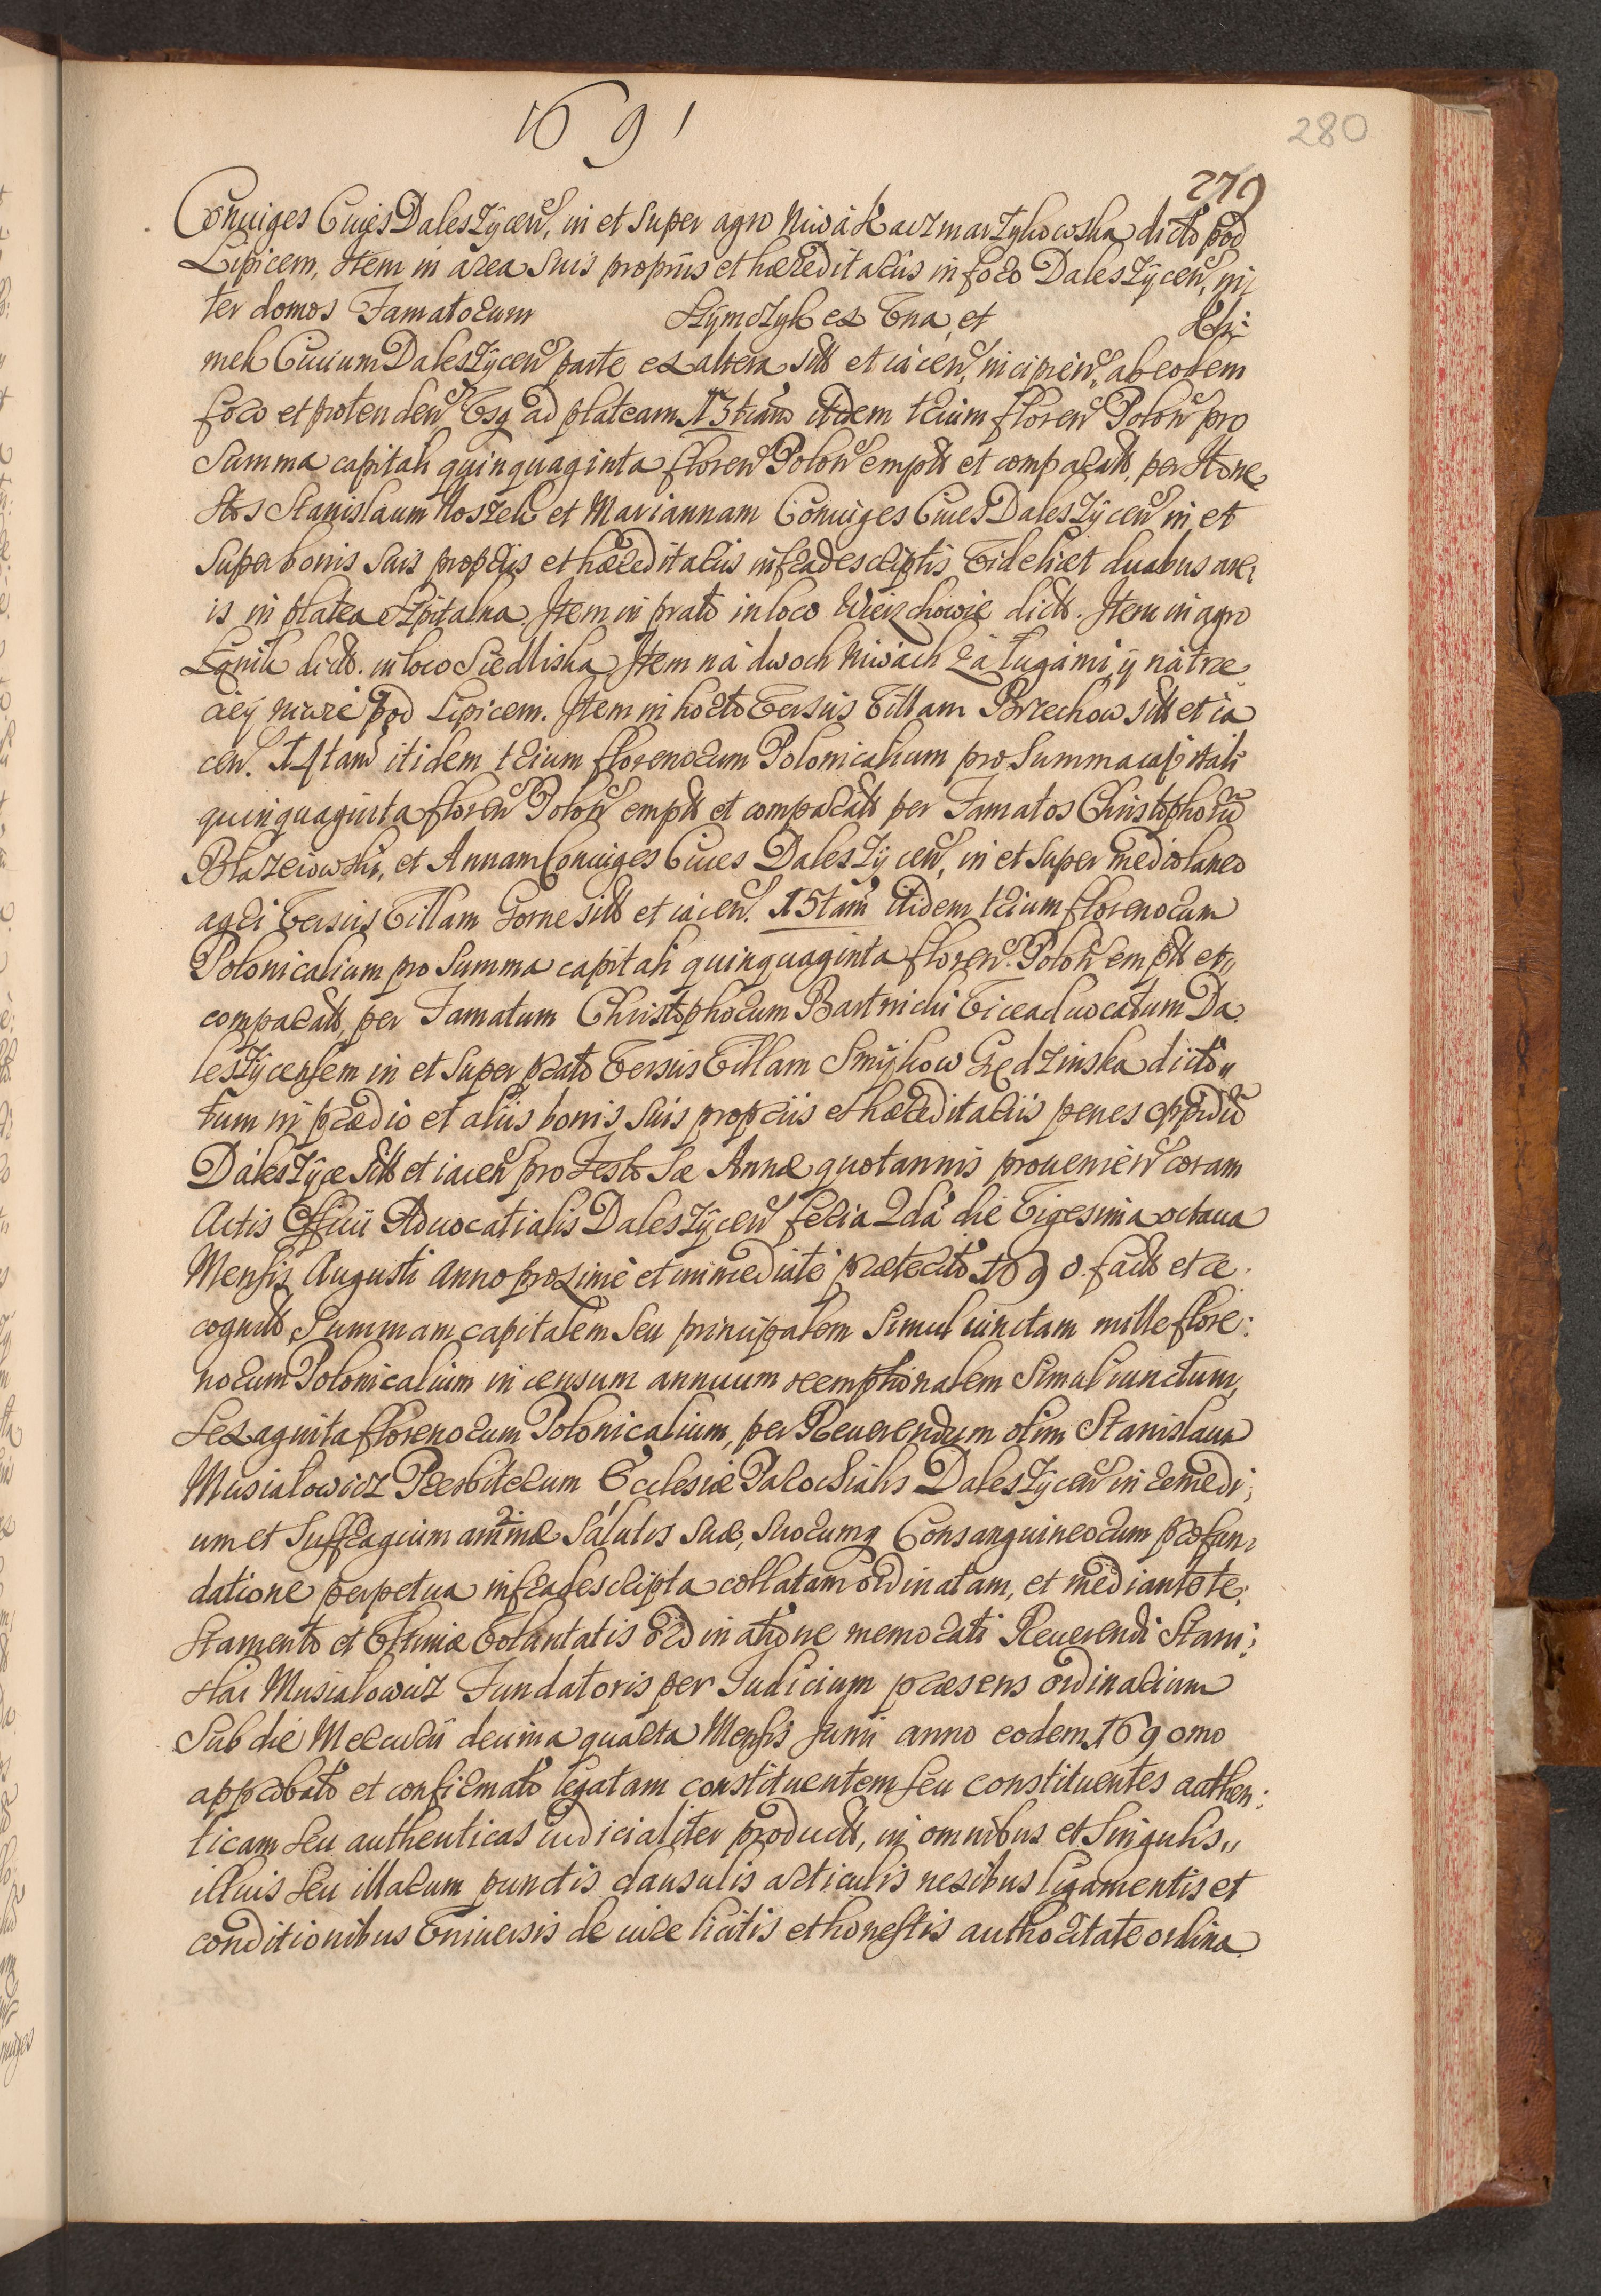 1691
280
279
Conuiges Ciues Daleszÿcen̄, in et super agro Niwá Kaczmarzykowska dicto pod
Lipicem, Item in area suis proprijs et hæreditarijs in foro Daleszÿcen̄, in
ter domos Famatorum Szÿmczyk ex vna, et Chi:
mek Ciuium Daleszÿcen̄ parte ex altera sitt et iácen̄, incipien̄, ab eodem
foro et protenden̄ vsq ad plateam, 13tium itidem trium floren̄ Polon̄ pro
summa capitali quinquaginta floren̄ Polon̄ empt et comparatt, per Hone
stos Stanislaum Noszek et Mariannam Conuiges Ciues Daleszÿcen̄ in et
super bonis suis proprijs et hæreditarijs infradescriptis videlicet duabus are
is in platea Szpitalna. Item in prato in loco Wierzchowie dict. Item in agro
Lgnik dict. in loco Siedliska Item ná dwoch Niwách zá Ługámi, ÿ ná trze
cieÿ niwie pod Lipicem. Item in horto versus villam Brzechow sitt et ia
cen̄. 14tam itidem trium florenorum Polonicalium pro summa capitali
quinquaginta floren̄ Polon̄ empt et comparatt per Famatos Christophorū
Błazeiowski, et Annam Conuiges Ciues Daleszÿcen̄, in et super mediolaneo
agri versus villam Gorne sitt et iácen̄. 15tam itidem trium florenorum
Polonicalium pro summa capitali quinquaginta floren̄ Polon̄ empt et
comparatt, per Famatum Christophorum Bartnicki Viceaduocatum Da
leszÿcensem in et super prato versus villam Smÿkow Gędzinska dicto
tum in prædio et aliis bonis suis propriis et hæreditariis penes oppidū
Dáleszÿce sitt et iacen̄ pro Festo Sæ Annæ quotannis prouenien̄ coram
Actis Officii Aduocatialis Daleszÿcen̄ feria 2da die vigesima octaua
Mensis Augusti anno proxime et immediate præterito 1690. fact et re
cognitt, Summam capitalem seu principalem simul iunctam mille flore:
norum Polonicalium in censum annuum reemptionalem simul iunctum,
sexaginta florenorum Polonicalium, per Reuerendum olim Stanislaum
Musiałowicz Presbiterum Ecclesiæ Parochialis Daleszÿcen̄ in remedi:
um et suffragium animæ salutis suæ, suorumq Consanguineorum pro fun:
datione perpetua infradescripta collatam ordinatam, et mediante te:
stamento et vltimæ voluntatis ordinatione memorati Reuerendi Stani:
slai Musiałowicz Fundatoris per Iudicium præsens ordinarium
sub die Mercurii decima quarta Mensis Junii anno eodem 1690mo
approbato et confirmato legatam constituentem seu constituentes authen:
ticam seu authenticas iudicialiter product, in omnibus et singulis
illius seu illarum punctis clausulis articulis nexibus ligamentis et
conditionibus vniuersis de iure licitis et honestis authoritate ordina